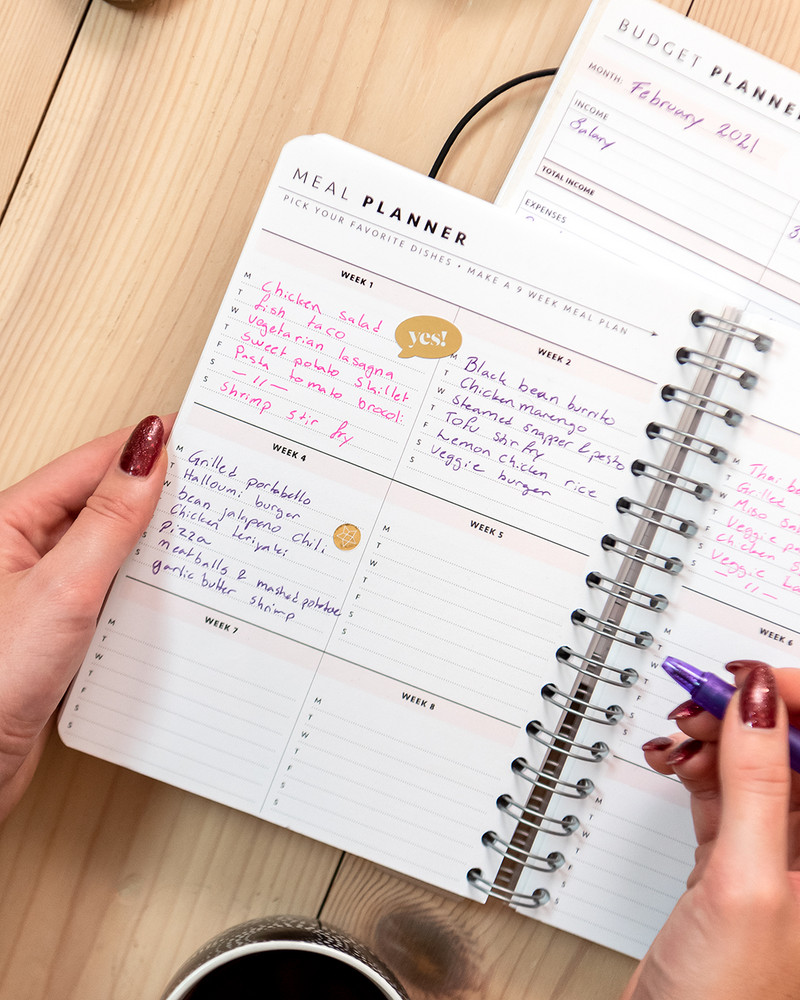 BUDGET PLANNER
MONTH: February 2021
INCOME
Salary
TOTAL INCOME
EXPENSES
MEAL PLANNER
PICK YOUR FAVORITE DISHES • MAKE A 9 WEEK MEAL PLAN
WEEK 1
M Chicken salad
T fish taco
W vegetarian lasagna
T sweet potato skillet
F Pasta tomato brocoli
S — 11 —
S shrimp stir fry
yes!
WEEK 2
M Black bean burrito
T Chicken marengo
W steamed snapper & pesto
T Tofu stir fry
F Lemon chicken rice
S veggie burger
S
M Thai
T Grilled
W Miso
T Veggie
F Chicken
S Veggie
S — 11 —
WEEK 4
M Grilled portabello
T Halloumi burger
W bean jalapeno chili
T Chicken teriyaki
F Pizza
S meatballs & mashed potatoe
S garlic butter shrimp
WEEK 5
M
T
W
T
F
S
S
WEEK 6
M
T
W
T
F
S
S
WEEK 7
M
T
W
T
F
S
S
WEEK 8
M
T
W
T
F
S
S
M
T
W
T
F
S
S